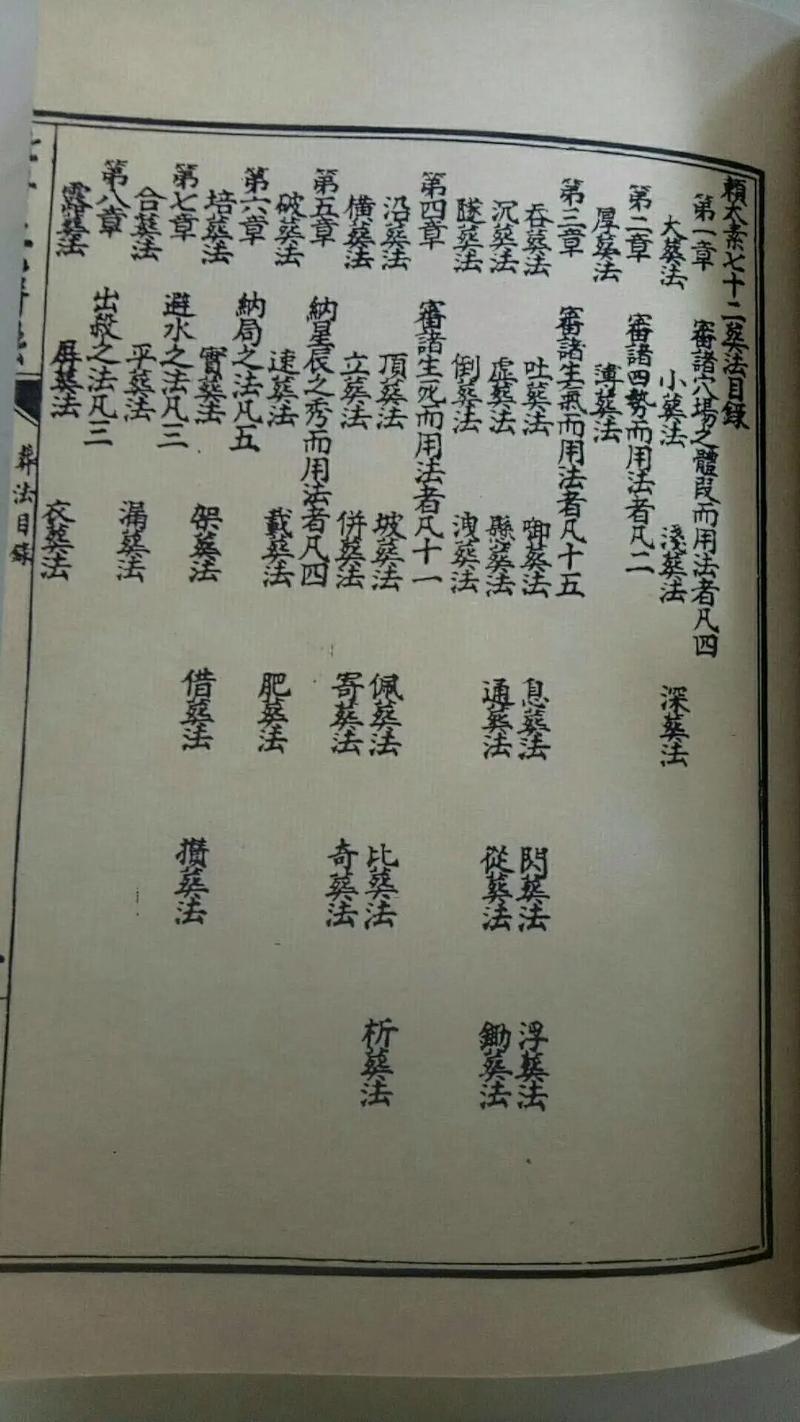 賴太素七十二葬法目錄
第一章 審諸穴場之體段而用法者凡四
大葬法 小葬法 淺葬法 深葬法
第二章 審諸四勢而用法者凡二
厚葬法 薄葬法
第三章 審諸生氣而用法者凡十五
吞葬法 吐葬法 啣葬法 息葬法 閃葬法 浮葬法
沉葬法 虛葬法 懸葬法 通葬法 從葬法 鋤葬法
隧葬法 倒葬法 洩葬法
第四章 審諸生死而用法者凡十一
沿葬法 頂葬法 坡葬法 佩葬法 比葬法 析葬法
橫葬法 立葬法 併葬法 寄葬法 奇葬法
第五章 納星辰之秀而用法者凡四
破葬法 速葬法 載葬法 肥葬法
第六章 納局之法凡五
培葬法 實葬法 架葬法 借葬法 攢葬法
第七章 避水之法凡三
合葬法 平葬法 漏葬法
第八章 出殺之法凡三
露葬法 屏葬法 衣葬法
葬法目錄